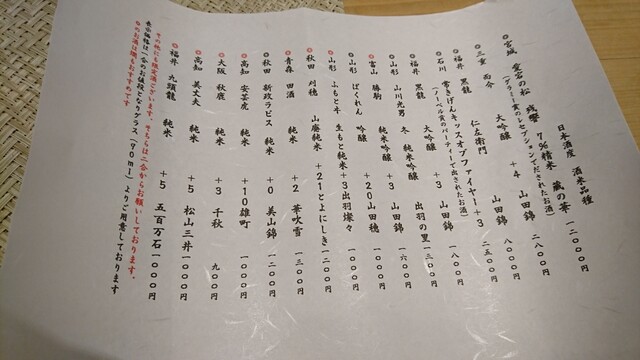 日本酒度 酒米品種
◎宮城 愛宕の松 残響 7%精米 蔵の華 一二〇〇〇円
(グラミー賞のレセプションでだされたお酒) 二八〇〇円
大吟醸 +4 山田錦 八〇〇円
◎三重 而今 山田錦 二五〇〇円
◎福井 黒龍 仁左衛門
◎石川 常きげんキッスオブファイヤー+3 山田錦 一八〇〇円
(ノーベル賞のパーティーで出されたお酒)
◎福井 黒龍 大吟醸 +3 出羽の里 一三〇〇円
◎山形 山川光男 冬 純米吟醸 山田錦 一六〇〇円
◎富山 勝駒 純米吟醸+3 山田錦
◎山形 ばくれん 吟醸 +20 山田穂 一〇〇〇円
◎山形 ふもと井 生もと純米+3 出羽燦々 一〇〇〇円
◎秋田 刈穂 山廃純米+21 とよにしき 一二〇〇円
◎青森 田酒 純米 +2 華吹雪 一三〇〇円
◎秋田 新政ラピス 純米 +0 美山錦 一二〇〇円
◎高知 安芸虎 純米 +10 雄町 一〇〇〇円
◎大阪 秋鹿 純米 +3 千秋 九〇〇円
◎高知 美丈夫 純米 +5 松山三井 一〇〇〇円
◎福井 九頭龍 純米 +5 五百万石 一〇〇〇円
その他にも限定酒ございます。そちらは二合からお願いしております。
表示価格は一合のお値段となりグラス(90ml)よりご用意しております
◎のお酒は燗もおすすめです